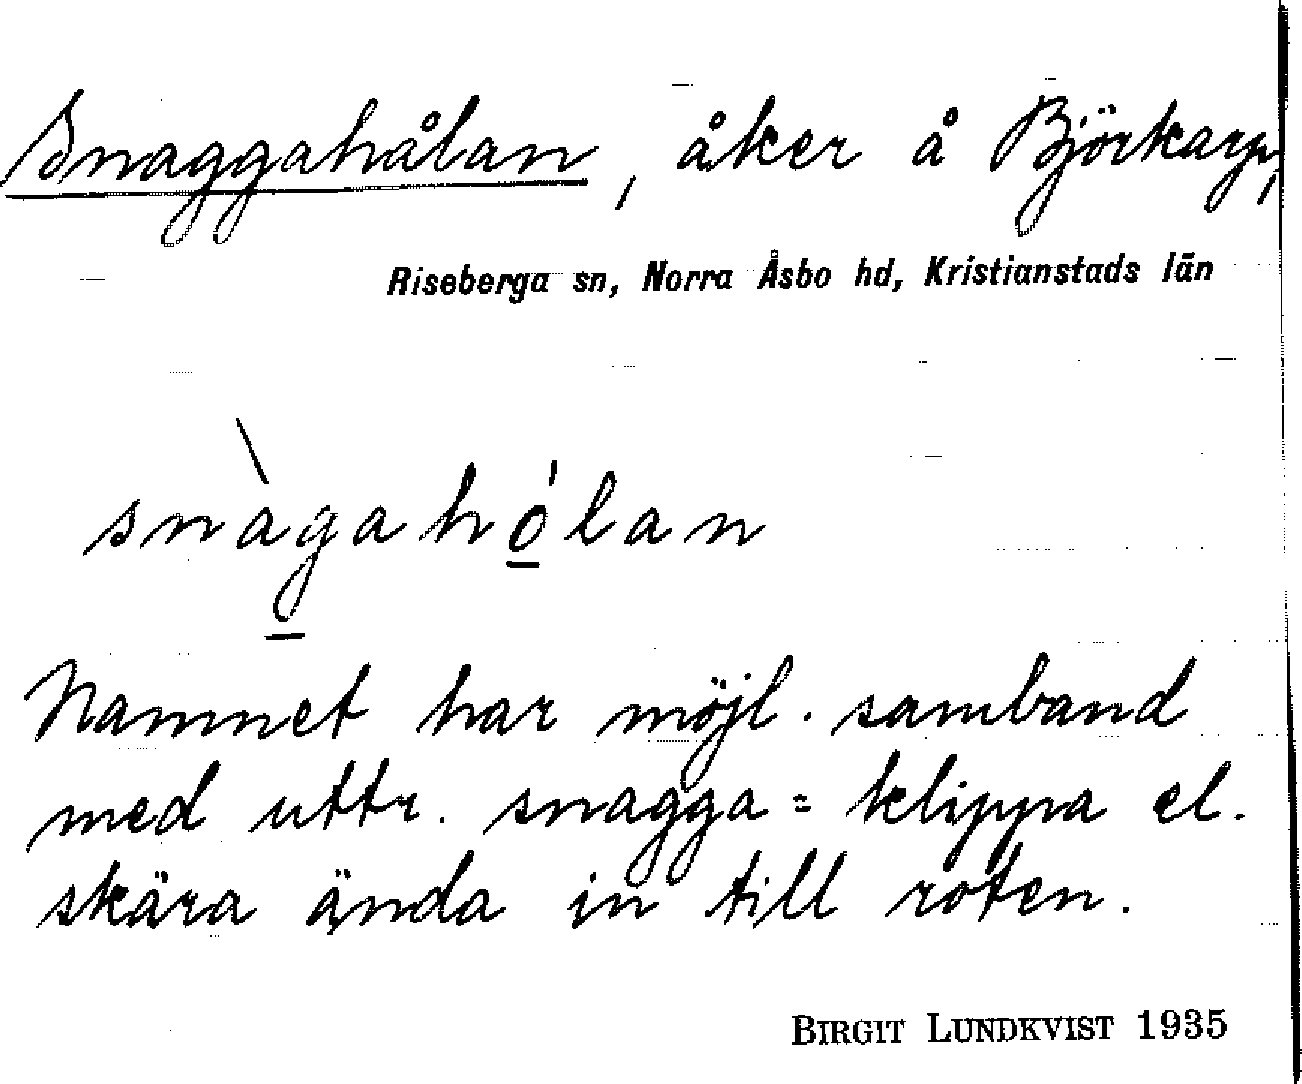 Snaggahålan, åker å Björkarp,
Riseberga sn, Norra Åsbo hd, Kristianstads län
snàgahólan
Namnet har möjl. samband
med uttr. snagga = klippa el.
skära ända in till roten.
BIRGIT LUNDKVIST 1935